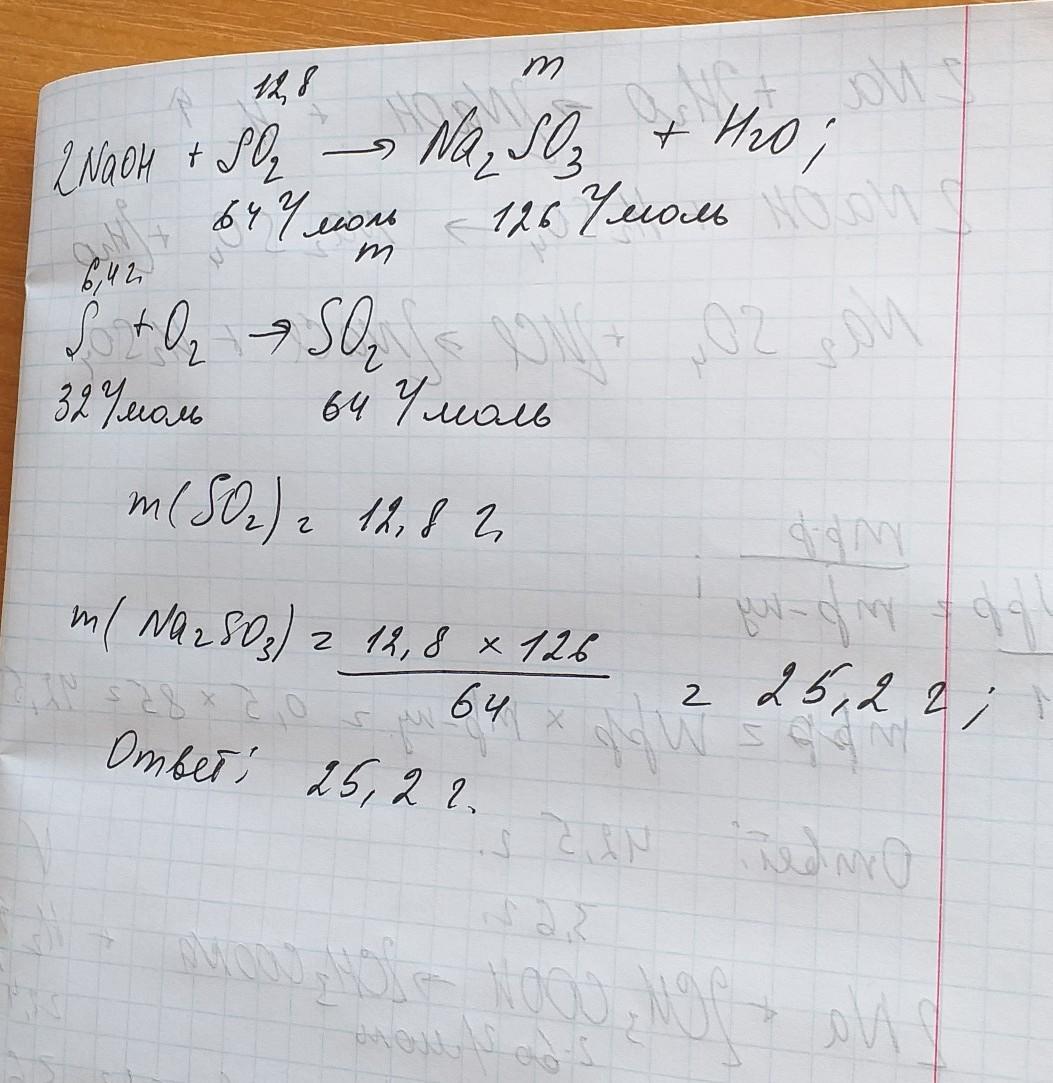 12,8 m
2NaOH + SO₂ → Na₂SO₃ + H₂O;
64 г/моль 126 г/моль
6,4 г m
S + O₂ → SO₂
32 г/моль 64 г/моль
m(SO₂) = 12,8 г
m(Na₂SO₃) = 12,8 × 126 / 64 = 25,2 г;
Ответ: 25,2 г.